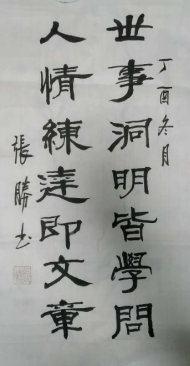 丁酉冬月
世事洞明皆學問
人情練達即文章
張勝书